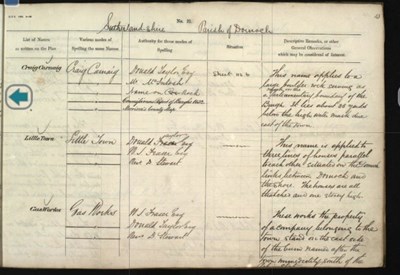 Sutherland-shire
No. 21
Parish of Dornoch
List of Names
as written on the Plan
Various modes of
Spelling the same Names
Authority for those modes of
Spelling
Situation
Descriptive Remarks, or other
General Observations
which may be considered of Interest.
Craig Carnaig
Craig Carnaig
Donald Taylor Esq
Mr. McIntosh
Name on Rock
Sheet
This name applies to a
rock serving as
a Parliamentary boundary of the
Burgh. It lies about 20 yards
below the high water mark due
east of the town
Little Town
Little Town
Donald Taylor Esq
W. S. Fraser Esq
Revd D. Stewart
This name is applied to
three lines of houses parallel
to each other situated on the Dornoch
links between Dornoch and
the shore. The houses are all
thatched and one story high
Gas Works
Gas Works
W. S. Fraser Esq
Donald Taylor Esq
Revd D. Stewart
These works the property
of a company belonging to the
town stand on the east side
of the south of the